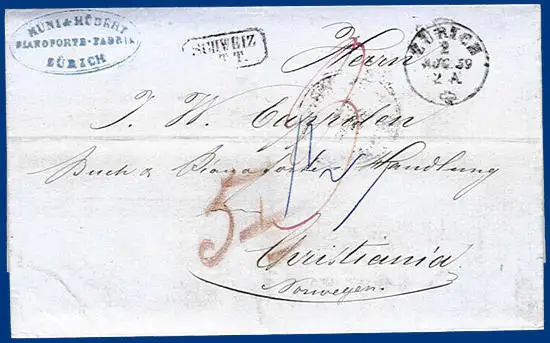 HÜNI & HÜBERT
PIANOFORTE-FABRIK
ZÜRICH
SCHWEIZ
T. T.
ZÜRICH
2
AUG. 59
2 A.
Herrn
J. W. Cappelen
Buch & Pianoforte-Handlung
Christiania
Norwegen.